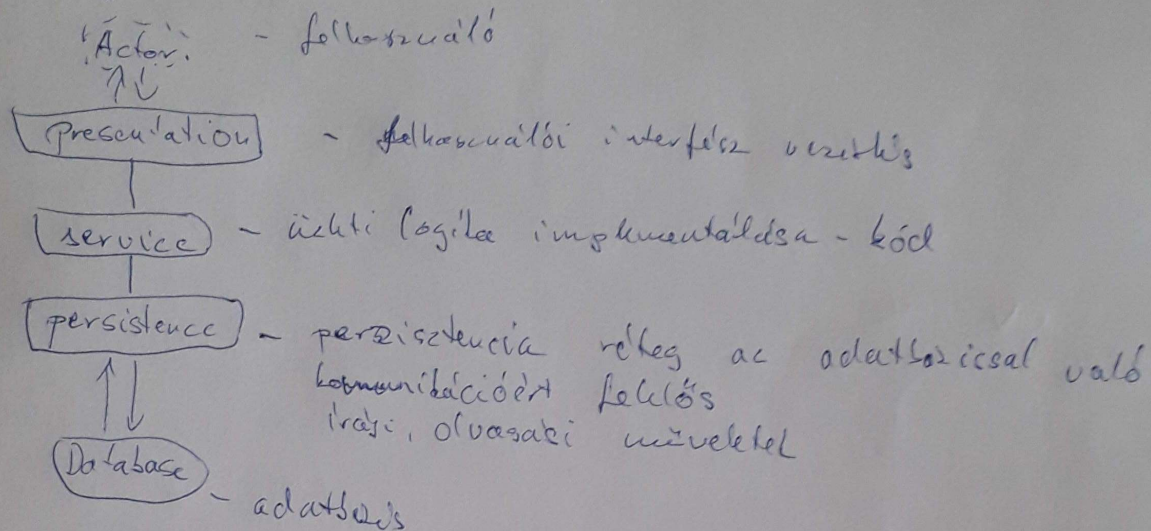 Actor - felhasználó
presentation - felhasználói interfész vezérlés
service - üzleti logika implementálása - kód
persistence - perzisztencia réteg az adatbázissal való
kommunikációért felelős
írási, olvasási műveletek
Database - adatbázis